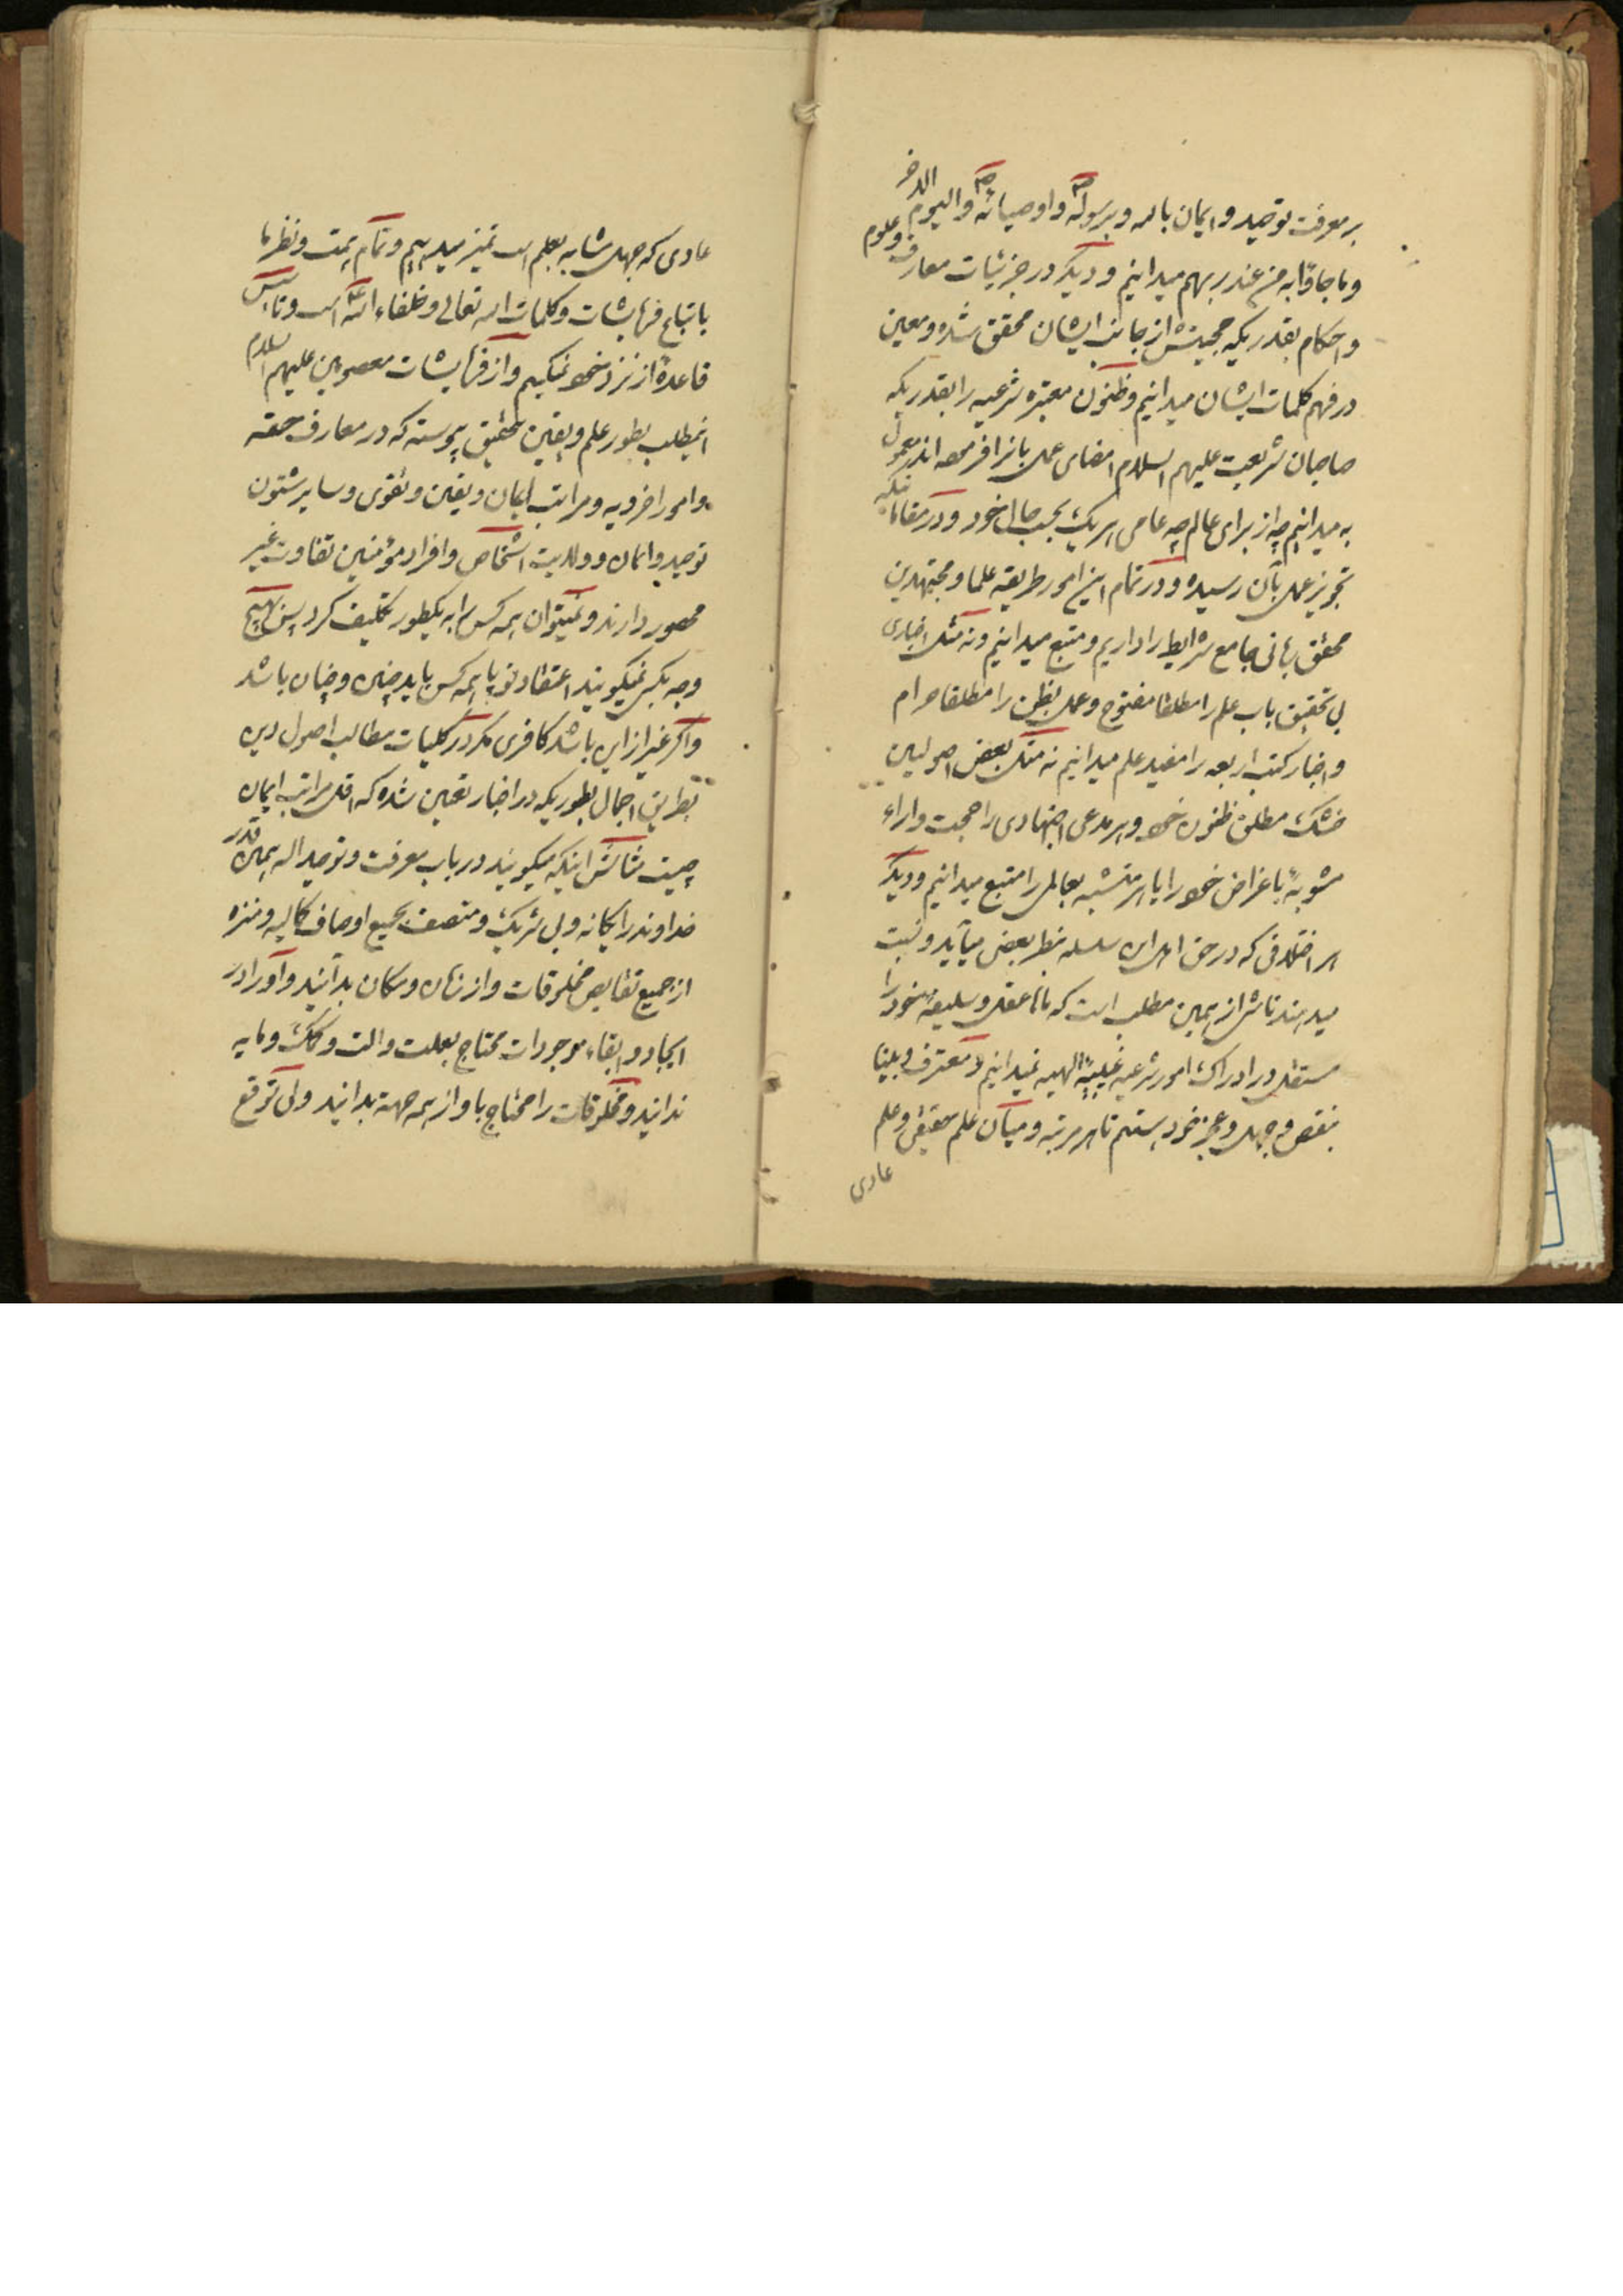 بر معرفت توحید و ایمان بالله و برسوله و اوصیائه والیوم الاخر
و ما جاؤا به من عند ربهم میدانیم و دیگر در جزئیات معارف و علوم
و احکام بقدریکه حجیتش از جانب ایشان محقق شده و معین
در فهم کلمات ایشان میدانیم و ظنون معتبره شرعیه را بقدریکه
صاحبان شریعت علیهم السلام امضای عمل بانرا فرموده اند معمول
به میدانیم چه از برای عالم چه عامی هر یک بحسب حال خود و در مقاماتیکه
تجویز عمل بآن رسیده و در تمام این امور طریقه علما و مجتهدین
محقق ربانی جامع شرایط را داریم و متبع میدانیم و نه مثل اخباری
بی تحقیق باب علم را مطلقا مفتوح و عمل بظن را مطلقا حرام
و اخبار کتب اربعه را مفید علم میدانیم نه مثل بعض اصولیین
خشک مطلق ظنون خود و هر مدعی اجتهادی را حجت و اراء
مشوبهٔ باغراض خود را یا هر متشبه بعالمی را متبع میدانیم و دیگر
هر اختلافی که در حق اهل این سلسله بنظر بعضی میآید و نسبت
میدهند ناشی از همین مطلب است که ما عقل و سلیقه خود را
مستقل در ادراک امور شرعیه غیبیهٔ الهیه نمیدانیم و معترف و بینا
بنقص و جهل و عجز خود هستیم تا هر مرتبه و میان علم حقیقی و علم
عادی
عادی که جهل مشابه بعلم است تمیز میدهیم و تمام همت و نظر ما
باتباع فرمایشات و کلمات الله تعالی و خلفاء الله است و تاسیس
قاعدهٔ از نزد خود نمیکنیم و از فرمایشات معصومین علیهم السلام
اینمطلب بطور علم و یقین بتحقیق پیوسته که در معارف حقه
و امور اخرویه و مراتب ایمان و یقین و تقوی و سایر شئون
توحید و ایمان و ولایت اشخاص و افراد مؤمنین تفاوت غیر
محصور دارند و نمیتوان همه کس را به یکطور تکلیف کرد پس بهیچ
وجه بکسی نمیگویند اعتقاد تو یا همه کس باید چنین و چنان باشد
و اگر غیر از این باشد کافری مگر در کلیات مطالب اصول دین
بطریق اجمال بطوریکه در اخبار تعیین شده که اقل مراتب ایمان
چیست مثالش اینکه میگویند در باب معرفت و توحید اله همین قدر
خداوند را یگانه و بی شریک و متصف بجمیع اوصاف کمالیه و منزه
از جمیع نقایص مخلوقات و از زمان و مکان بدانند و او را در
ایجاد و ابقاء موجودات محتاج بعلت و الت و کمک و مایه
ندانید و مخلوقات را محتاج باو از همه جهة بدانید ولی توقع